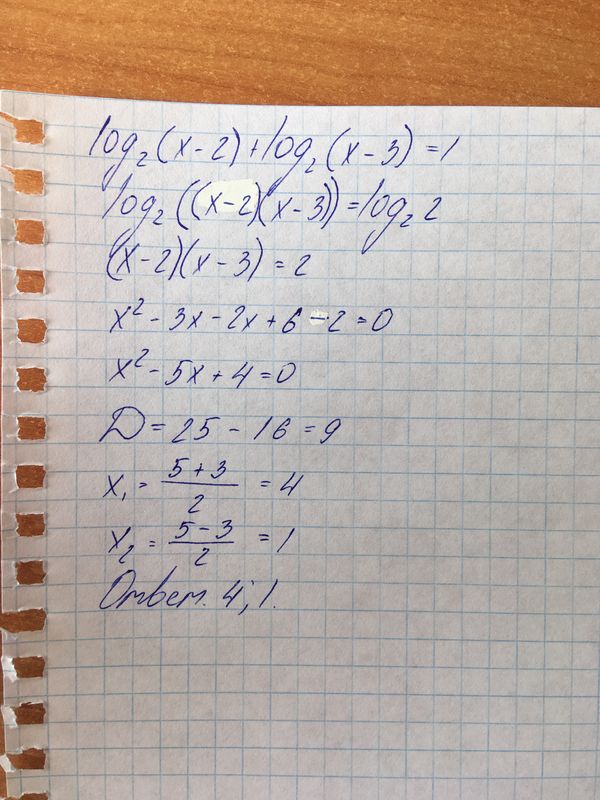 log₂(x-2)+log₂(x-3)=1
log₂((x-2)(x-3))=log₂2
(x-2)(x-3)=2
x²-3x-2x+6-2=0
x²-5x+4=0
D=25-16=9
x₁=(5+3)/2=4
x₂=(5-3)/2=1
Ответ. 4;1.